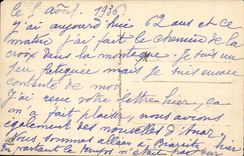 le 8 août. 1936
j'ai aujourd'hui 62 ans et ce
matin j'ai fait le chemin de la
croix dans la montagne je suis un
peu fatiguée mais je suis encore
contente de moi
J'ai reçu votre lettre hier, ça
m'a fait plaisir, nous avons
également des nouvelles d'
Nous sommes allées à Biarritz hier
En partant le temps n'était pas